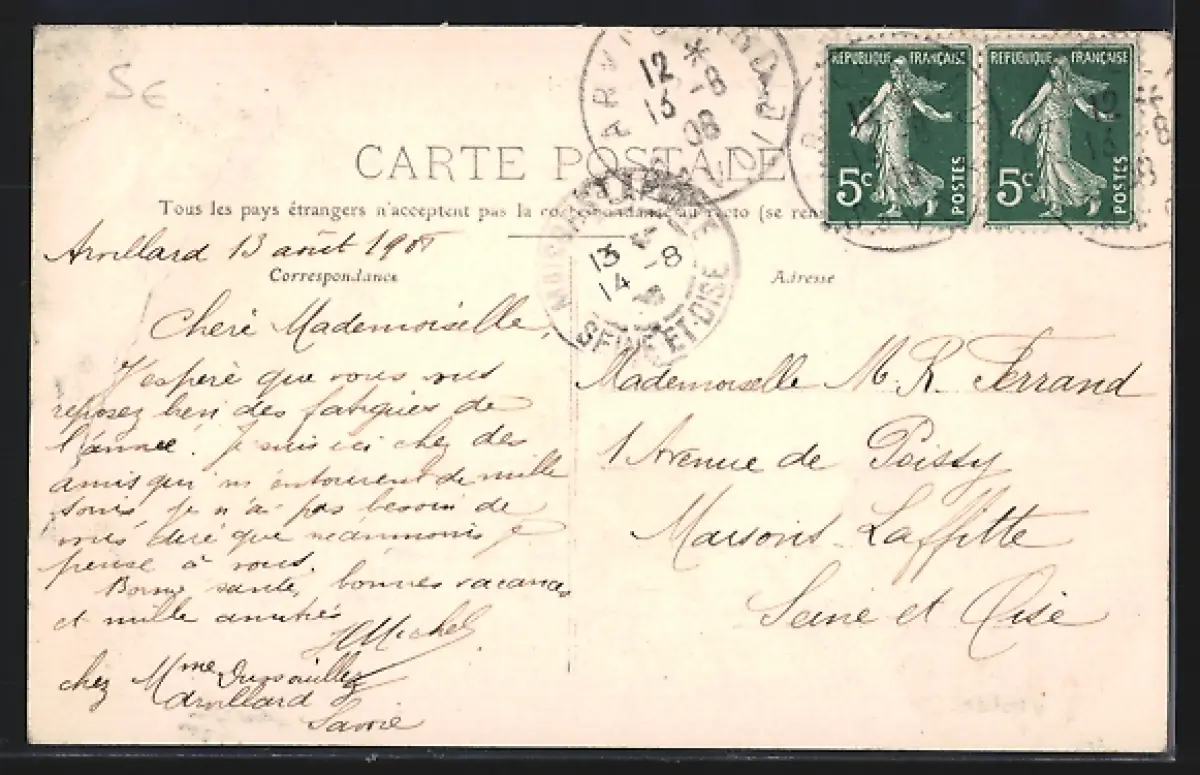 SE
ARV
12 *
13 -8
08
REPUBLIQUE FRANÇAISE
5c POSTES
REPUBLIQUE FRANÇAISE
5c POSTES
CARTE POSTALE
Tous les pays étrangers n'acceptent pas la correspondance au recto (se rens
SEINE-ET-OISE
13
14 -8
Arvillard 13 août 190
Correspondance
Adresse
Cheré Mademoiselle,
J'esperè que vous vous
reposez bien des fatigues de
l'année. Je suis ici chez des
amis qui m'entourent de mille
soins je n'ai pas besoin de
vous que néanmoins je
pense à vous.
Bonne santé, bonnes vacances
et mille amitiés
Michel
chez Mme
Arvillard
Savoie
Mademoiselle M. R. Ferrand
1 Avenue de Poissy
Maisons-Laffitte
Seine et Oise